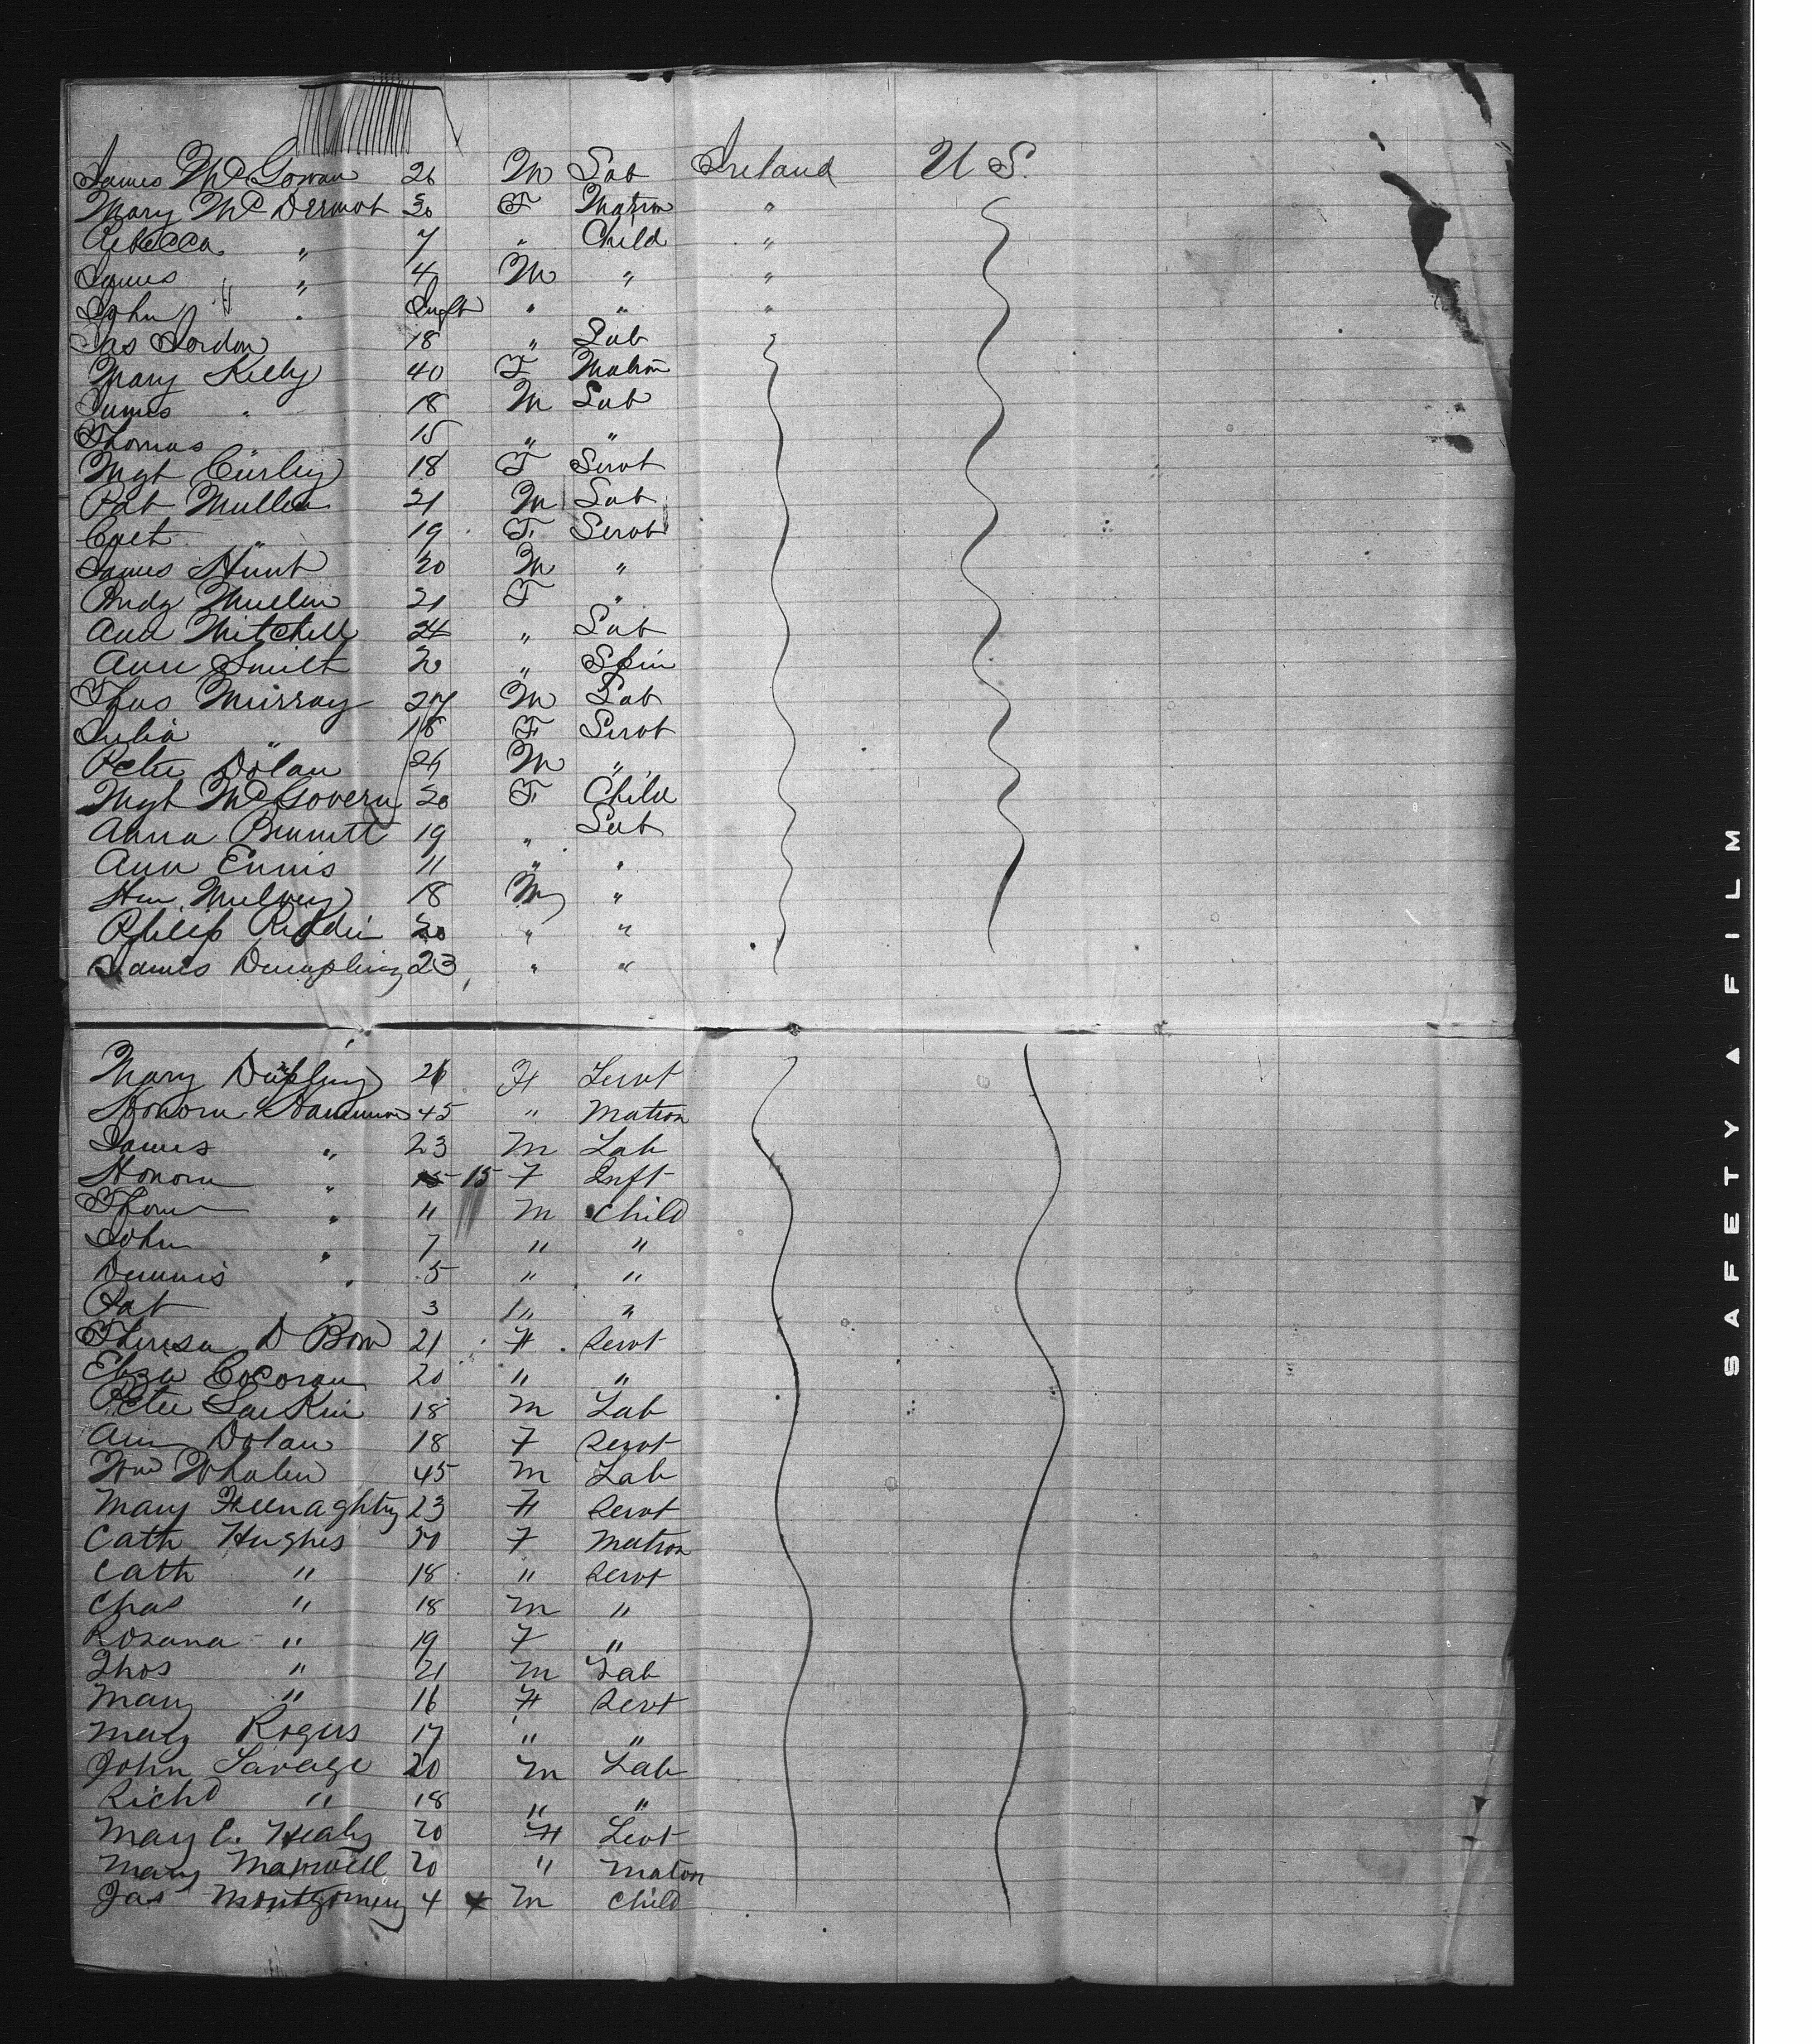 James McGowan 26 M Lab Ireland U S.
Mary McDermot 30 F Matron "
Rebecca " 7 " Child "
James " " 4 M " "
John " " Inft " " "
Jas Jordon 18 " Lab
Mary Kelly 40 F Matron
James " 18 M Lab
Thomas 15 " "
Mgt Curley 18 F Servt
Pat Mullen 21 M Lab
Cath " 19 F. Servt
James Hunt 20 M "
Bridg Mullen 21 F "
Ann Mitchell 24 " Lab
Ann Smith 20 " Spin
Thos Murray 27 M Lab
Julia " 18 F Servt
Peter Dolan 24 M "
Mgt McGovern 20 F Child
Anna Bennett 19 " Lab
Ann Ennis 11 " "
Mulvey 18 M "
Philip 20 " "
James Dumpling 23 " "
Mary Dumpling 26 F Servt
Honora 45 " Matron
James " 23 M Lab
Honora " 15 15 F Inft
Thom " 11 M Child
John " 7 " "
Dennis " 5 " "
Pat 3 " "
Theresa D Bow 21 F Servt
Eliza Cocoran 20 " "
Peter Larkin 18 M Lab
Ann Dolan 18 F Servt
Wm Whalen 45 M Lab
Mary Feenaghty 23 F Servt
Cath Hughes 50 F Matron
Cath " 18 " Servt
Chas " 18 M "
Rosana " 19 F "
Thos " 21 M Lab
Mary " 16 F Servt
Mary Rogers 17 " "
John Savage 20 M Lab
Richd " 18 " "
Mary C. Healy 20 F Sevt
Mary Maxwell 20 " Maton
Jas Montgomery 4 4 M Child
SAFETY ▲ FILM